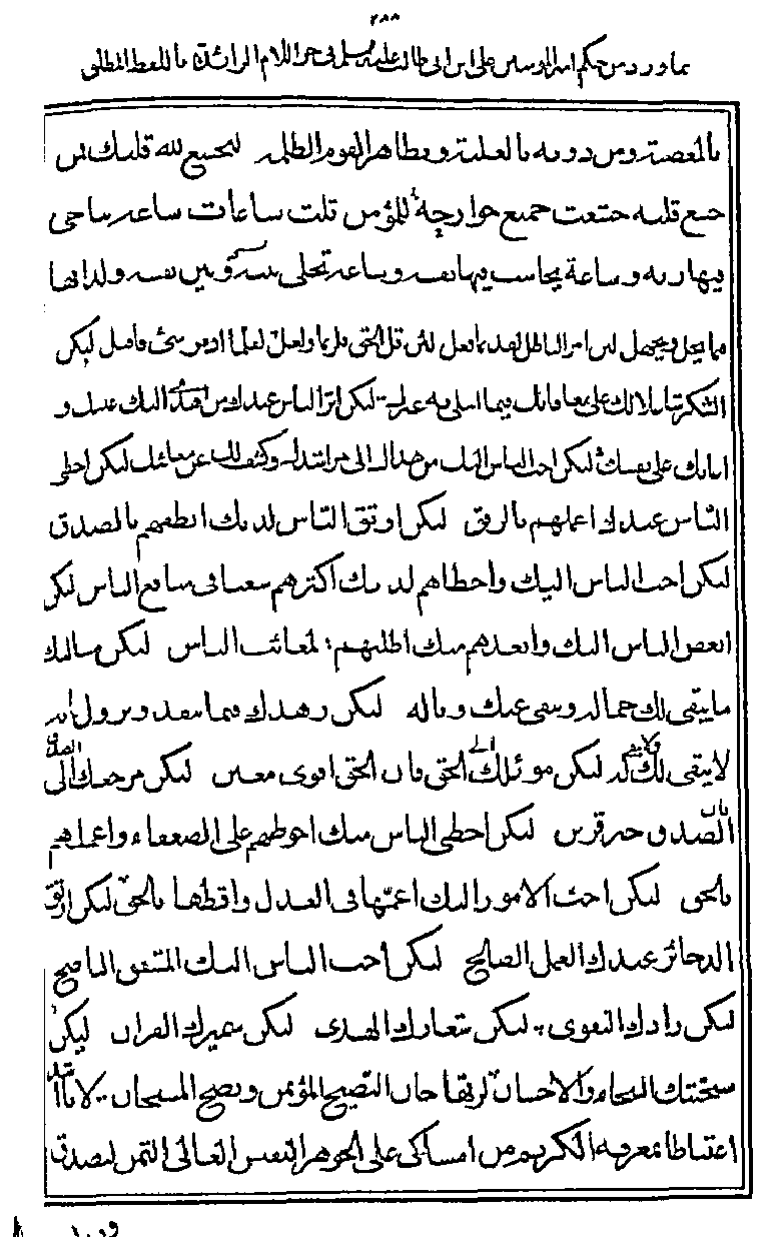 ٢٨٨
مما ورد من حكم امير المؤمنين على ابن ابى طالب عليه فى حرف اللام الزائدة باللفظ المطلق
بالمعصية ومن دونه بالغلبة ويظاهر القوم الظلمة ليخشع لله قلبك فمن
خشع قلبه خشعت جميع جوارحه للمؤمن ثلث ساعات ساعة يناجى
فيها ربه وساعة يحاسب فيها نفسه وساعة تخلى بين نفسه ولذاتها
فيما يحل ويجمل لئن امر الباطل لقديما فعل لئن قل الحق فلربما ولعل لقلما ادبر شئ فاقبل ليكن
الشكر شاغلا لك على معافاتك مما ابتلى به غيرك ليكن اثر الناس عندك من اهدى اليك عيبك و
اعانك على نفسك ليكن احب الناس اليك من هداك الى مراشدك وكشف لك عن معائبك ليكن احظى
الناس عندك اعملهم بالرفق ليكن اوثق الناس لديك انطقهم بالصدق
ليكن احب الناس اليك واحظاهم لديك اكثرهم سعيا فى منافع الناس ليكن
ابغض الناس اليك وابعدهم منك اطلبهم لمعائب الناس ليكن مسالتك
ما يبقى لك جماله وينفى عنك وباله ليكن زهدك فيما ينفد ويزول فانه
لا يبقى لك ولا تبقى له ليكن موئلك الى الحق فان الحق اقوى معين ليكن مرجعك الى الصدق
فان الصدق خير قرين ليكن احظى الناس منك احوطهم على الضعفاء واعملهم
بالحق ليكن احب الامور اليك اعمها فى العدل واقسطها بالحق ليكن اوثق
الذخائر عندك العمل الصالح ليكن احب الناس اليك المشفق الناصح
ليكن زادك التقوى ليكن شعارك الهدى ليكن سميرك القران ليكن
سجيتك السخاء والاحسان
اغتباطا بمعرفة الكريم من امساكى على الجوهر النفيس الغالى الثمن ليصدق